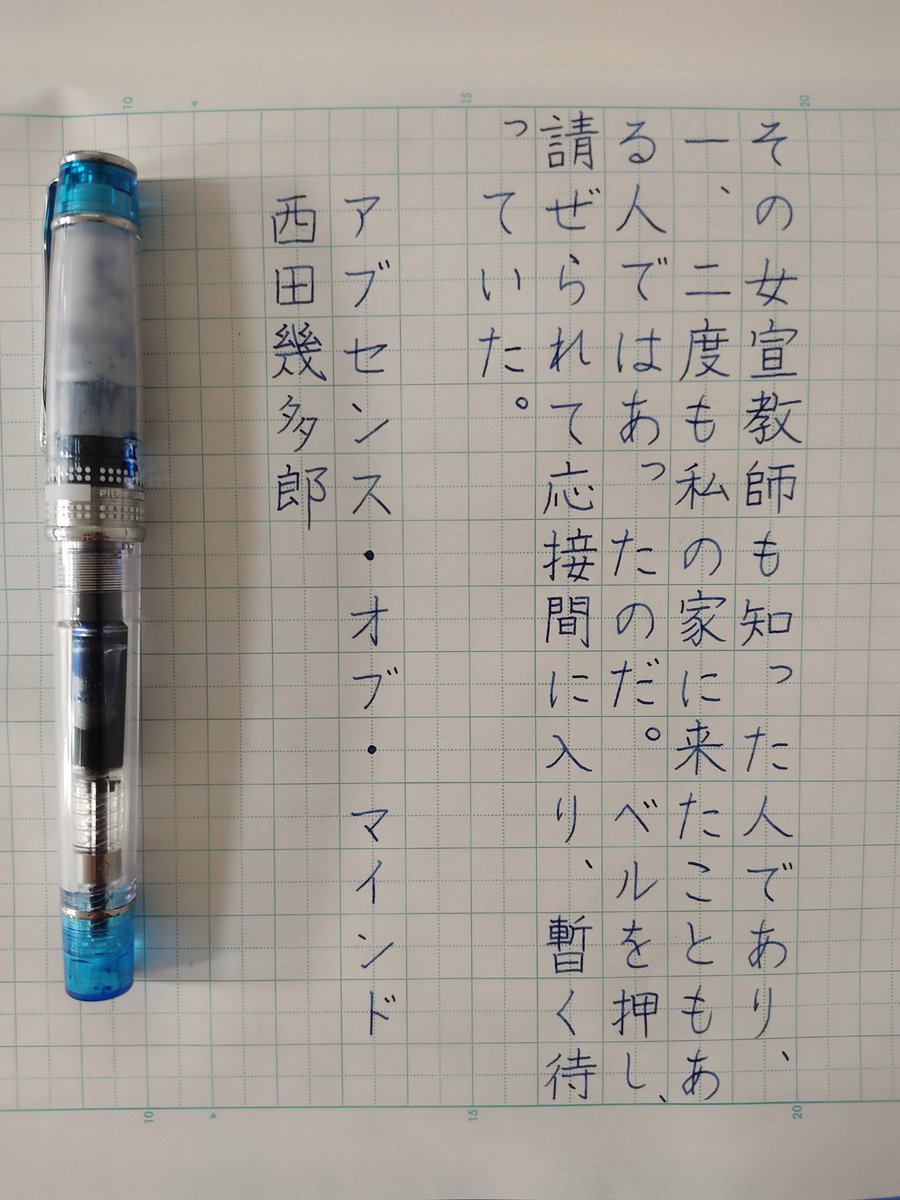 その女宣教師も知った人であり、
一、二度も私の家に来たこともあ
る人ではあったのだ。ベルを押し、
請ぜられて応接間に入り、暫く待
っていた。
アブセンス・オブ・マインド
西田幾多郎
10
15
20
10
15
20